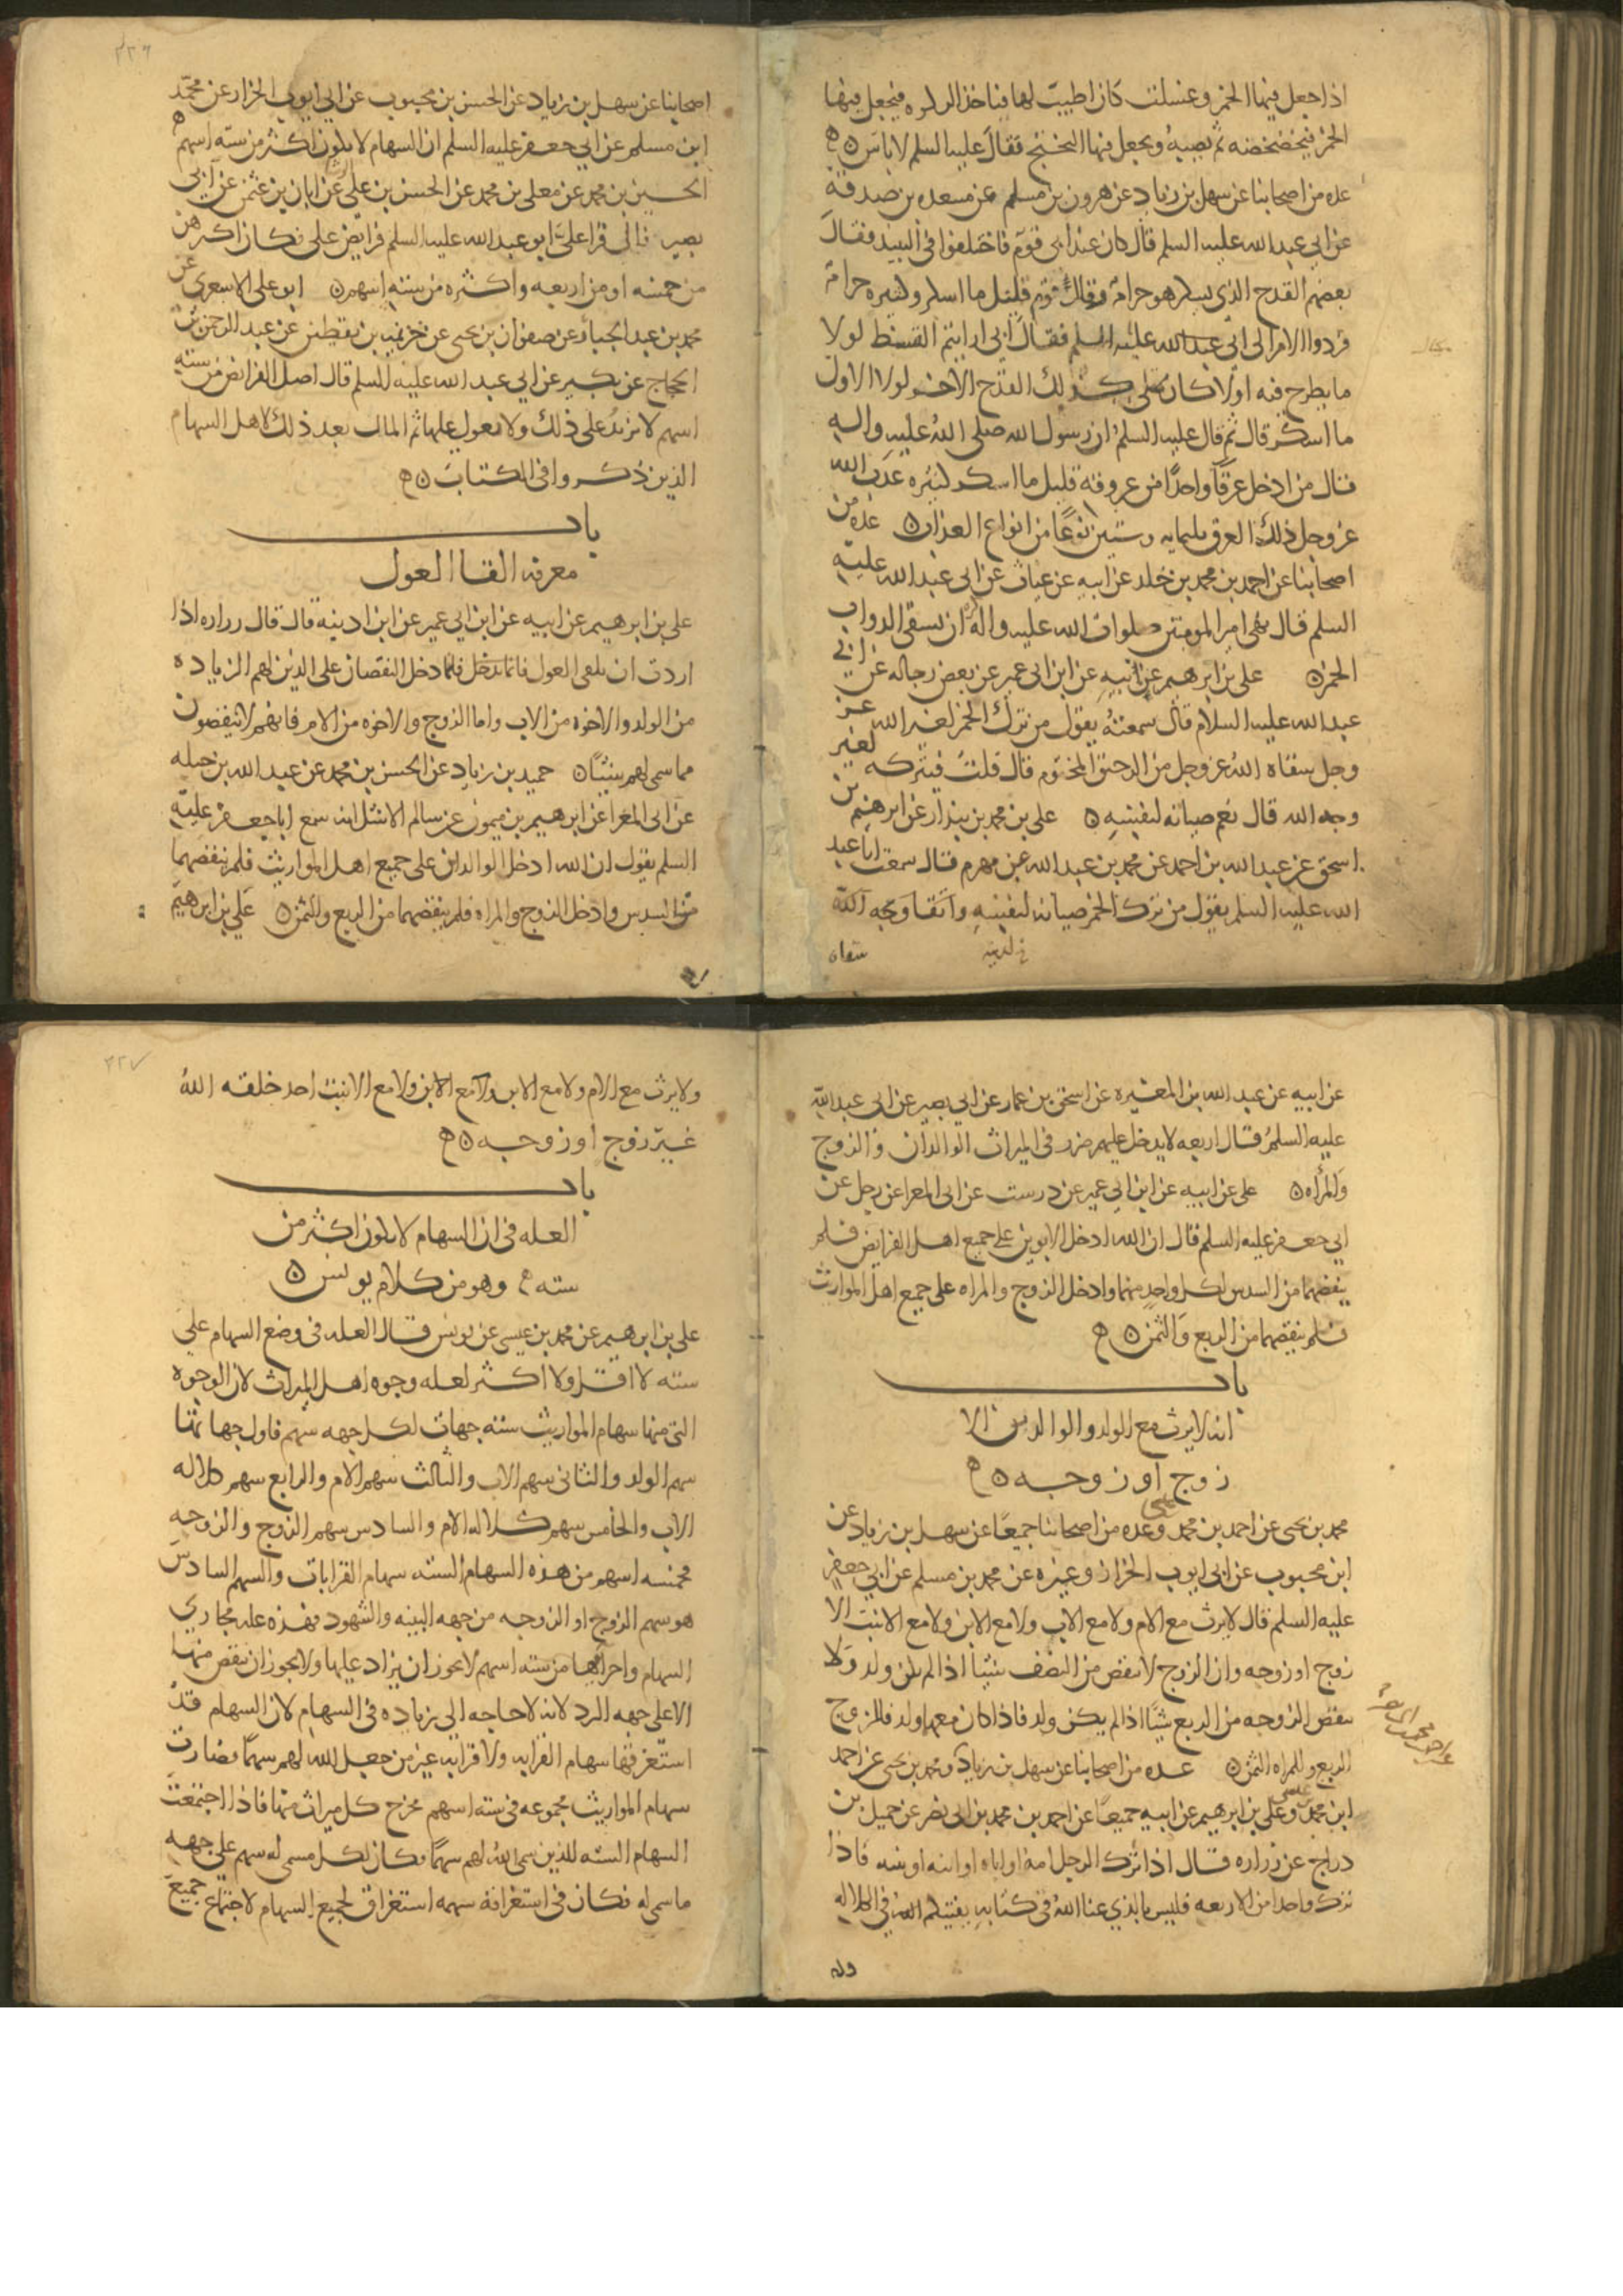 اذا جعل فيها الخمر وغسلت كان اطيب لها فياخذ الركوه فيجعل فيها
الخمر فيخضخضه ثم يصبه ويجعل فيها البختج فقال عليه السلم لا باس
عده من اصحابنا عن سهل بن زياد عن هرون بن مسلم عن مسعده بن صدقه
عن ابي عبد الله عليه السلم قال كان عند ابي قوم فاختلفوا في النبيذ فقال
بعضهم القدح الذي يسكر هو حرام وقال قوم قليل ما اسكر وكثيره حرام
فردوا الامر الى ابي عبد الله عليه السلم فقال ابي ارايتم القسط لولا
ما يطرح فيه اولا كان يمتلى كذلك القدح الاخر لولا الاول
ما اسكر قال ثم قال عليه السلم ان رسول الله صلى الله عليه واله
قال من ادخل عرقا واحدا من عروقه قليل ما اسكر كثيره عذب الله
عز وجل ذلك العرق بثلثمايه وستين نوعا من انواع العذاب عده من
اصحابنا عن احمد بن محمد بن خلد عن ابيه عن غياث عن ابي عبد الله عليه
السلم قال نهى امير المومنين صلوات الله عليه واله ان تسقى الدواب
الخمر علي بن ابرهيم عن ابيه عن ابن ابي عمير عن بعض رجاله عن ابي
عبد الله عليه السلام قال سمعته يقول من ترك الخمر لغير الله عز
وجل سقاه الله عز وجل من الرحيق المختوم قال قلت فيتركه لغير
وجه الله قال نعم صيانه لنفسه علي بن محمد بن بندار عن ابرهيم بن
اسحق عن عبد الله بن احمد عن محمد بن عبد الله عن مهزم قال سمعت ابا عبد
الله عليه السلم يقول من ترك الخمر صيانه لنفسه
سقاه
٢٢٦
اصحابنا عن سهل بن زياد عن الحسن بن محبوب عن ابي ايوب الخزاز عن محمد
ابن مسلم عن ابي جعفر عليه السلم ان السهام لا يكون اكثر من سته اسهم
الحسين بن محمد عن معلى بن محمد عن الحسن بن علي عن ابان بن عثمن عن ابي
بصير قال قرا علي ابو عبد الله عليه السلم فرايض علي فكان اكثرهن
من خمسه او من اربعه واكثره من سته اسهم ابو علي الاشعري عن
محمد بن عبد الجبار عن صفوان بن يحيى عن خزيمه بن يقطين عن عبد الرحمن بن
الحجاج عن بكير عن ابي عبد الله عليه السلم قال اصل الفرائض من سته
اسهم لا تزيد على ذلك ولا تعول عليها ثم المال بعد ذلك لاهل السهام
الذين ذكروا في الكتاب
باب
معرفه القا العول
علي بن ابرهيم عن ابيه عن ابن ابي عمير عن ابن اذينه قال قال زراره اذا
اردت ان تلقي العول فانما يدخل النقصان على الذين لهم الزياده
من الولد والاخوه من الاب واما الزوج والاخوه من الام فانهم لا ينقصون
مما سمى لهم شيئا حميد بن زياد عن الحسن بن محمد عن عبد الله بن جبله
عن ابي المغرا عن ابرهيم بن ميمون عن سالم الاشل انه سمع ابا جعفر عليه
السلم يقول ان الله ادخل الوالدين على جميع اهل المواريث فلم ينقصهما
من السدس وادخل الزوج والمراه فلم ينقصهما من الربع والثمن علي بن ابرهيم
عن ابيه عن عبد الله بن المغيره عن اسحق بن عمار عن ابي بصير عن ابي عبد الله
عليه السلم قال اربعه لا يدخل عليهم ضرر في الميراث الوالدان والزوج
والمراه علي عن ابيه عن ابن ابي عمير عن درست عن ابي المعرا عن رجل عن
ابي جعفر عليه السلم قال ان الله ادخل الابوين على جميع اهل الفرايض فلم
ينقصهما من السدس لكل واحد منهما وادخل الزوج والمراه على جميع اهل المواريث
فلم ينقصهما من الربع والثمن
باب
انه لا يرث مع الولد والوالدين الا
زوج او زوجه
محمد بن يحيى عن احمد بن محمد وعده من اصحابنا جميعا عن سهل بن زياد عن
ابن محبوب عن ابي ايوب الخزاز وغيره عن محمد بن مسلم عن ابي جعفر
عليه السلم قال لا يرث مع الام ولا مع الاب ولا مع الابن ولا مع الابنه الا
زوج او زوجه وان الزوج لا ينقص من النصف شيئا اذا لم يكن ولد ولا
تنقص الزوجه من الربع شيئا اذا لم يكن ولد فاذا كان معهما ولد فللزوج
الربع وللمراه الثمن عده من اصحابنا عن سهل بن زياد ومحمد بن يحيى عن احمد
ابن محمد وعلي بن ابرهيم عن ابيه جميعا عن احمد بن محمد بن ابي نصر عن جميل بن
دراج عن زراره قال اذا ترك الرجل امه او اباه او ابنه او بنته فاذا
ترك واحدا من الاربعه فليس بالذي عنا الله في كتابه يفتيكم الله في الكلاله
ولا
٢٢٧
ولا يرث مع الام ولا مع الاب ولا مع الابن ولا مع الابنت احد خلقه الله
غير زوج او زوجه
باب
العله في ان السهام لا يكون اكثر من
سته وهو من كلام يونس
علي بن ابرهيم عن محمد بن عيسى عن يونس قال العله في وضع السهام على
سته لا اقل ولا اكثر لعله وجوه اهل الميراث لان الوجوه
التي منها سهام المواريث سته جهات لكل جهه سهم فاول جهاتها
سهم الولد والثاني سهم الاب والثالث سهم الام والرابع سهم كلاله
الاب والخامس سهم كلاله الام والسادس سهم الزوج والزوجه
فخمسه اسهم من هذه السهام السته سهام القرابات والسهم السادس
هو سهم الزوج او الزوجه من جهه البينه والشهود فهذه عله مجاري
السهام واجراؤها من سته اسهم لا يجوز ان يزاد عليها ولا يجوز ان ينقص منها
الا على جهه الرد لانه لا حاجه الى زياده في السهام لان السهام قد
استغرقها سهام القرابه ولا قرابه غير من جعل الله لهم سهما فصارت
سهام المواريث مجموعه في سته اسهم مخرج كل ميراث منها فاذا اجتمعت
السهام السته للذين سمى الله لهم سهما فكان لكل مسمى له سهم على جهه
ما سمي له فكان في استغراقه سهمه استغراق لجميع السهام لاجتماع جميع